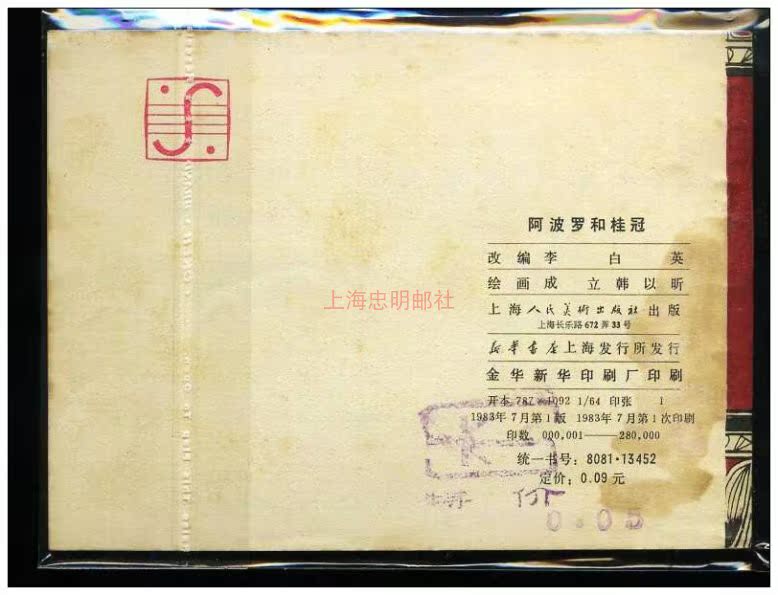 阿波罗和桂冠
改编 李白英
绘画 成立 韩以昕
上海人民美術出版社出版
上海长乐路672弄33号
新華書店上海发行所发行
金华新华印刷厂印刷
开本 787×1092 1/64 印张 1
1983年7月第1版 1983年7月第1次印刷
印数 000,001——280,000
统一书号：8081·13452
定价：0.09元
上海忠明邮社
价
0.05